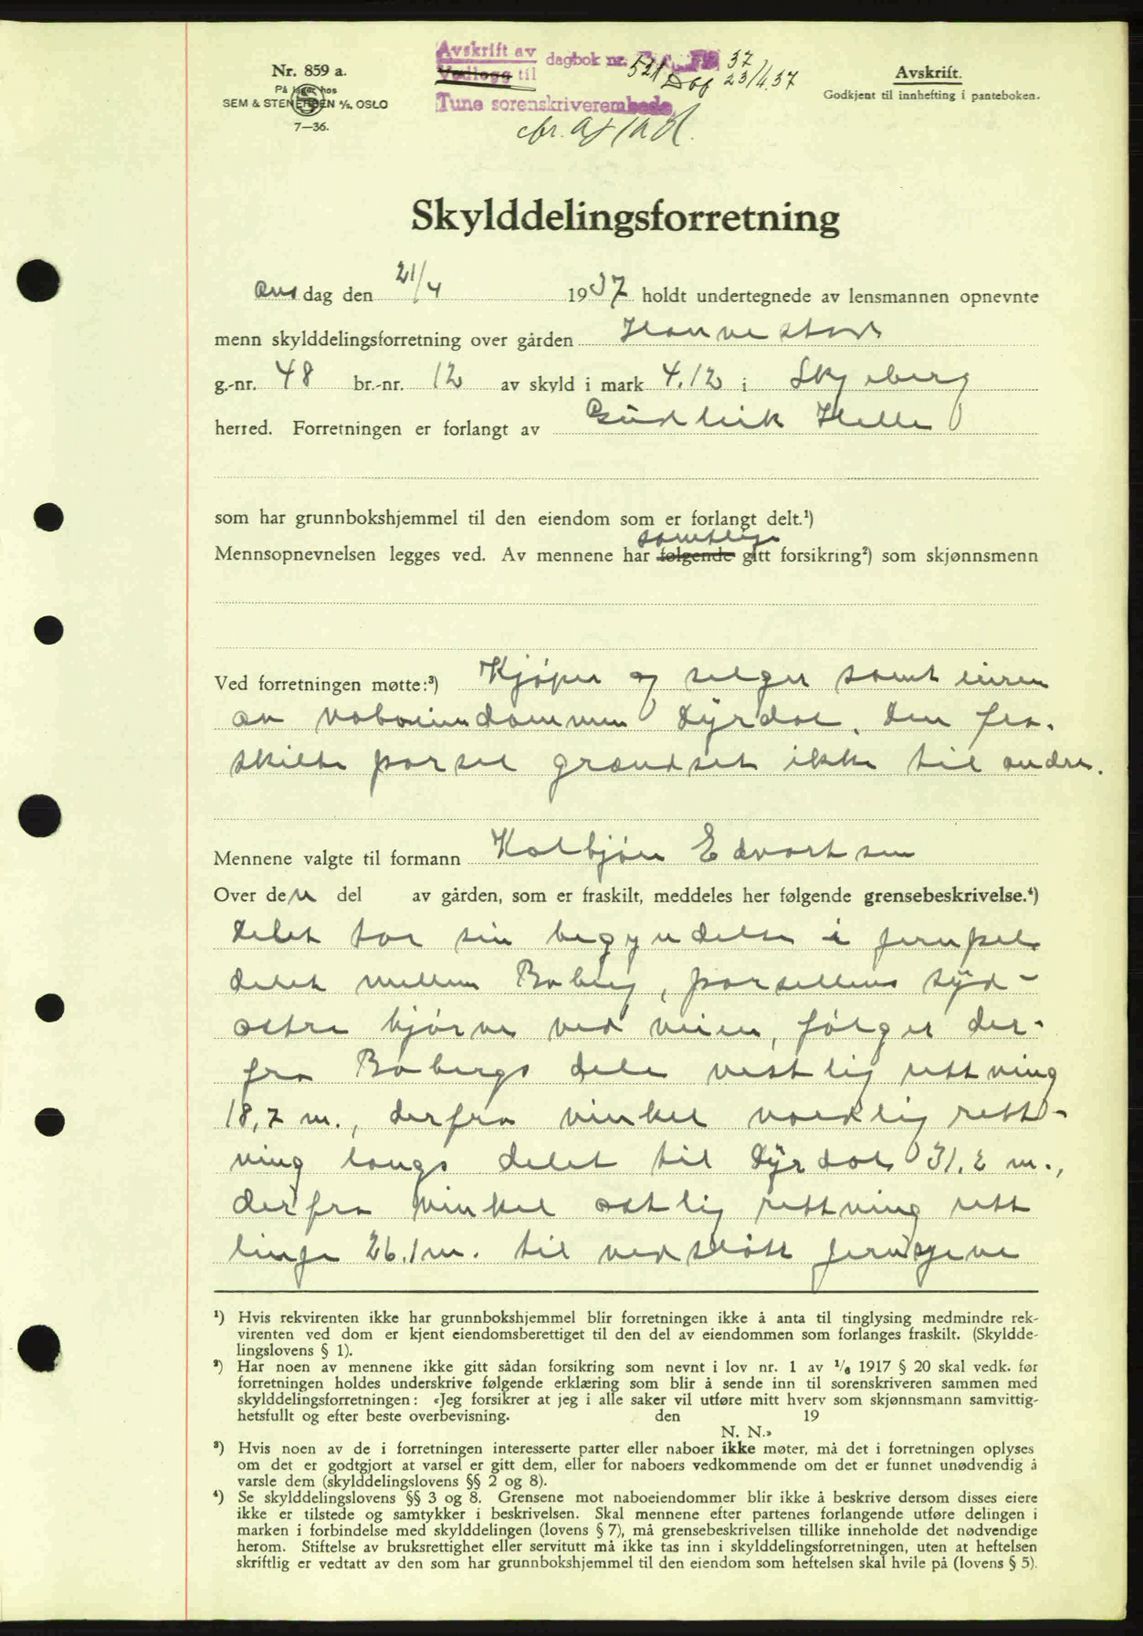 Nr. 859 a.
På lager hos
SEM & STENERSEN A/S, OSLO
7—36.
Avskrift av
Vedlegg til
dagbok nr. 521 37
Dag 23/4.37
Tune sorenskriverembede
Avskrift.
Godkjent til innhefting i panteboken.
Skylddelingsforretning
Onsdag den 21/4 1937 holdt undertegnede av lensmannen opnevnte
menn skylddelingsforretning over gården Hannestad
g.-nr. 48 br.-nr. 12 av skyld i mark 4.12 i Skjeberg
herred. Forretningen er forlangt av Gudleik Helle
som har grunnbokshjemmel til den eiendom som er forlangt delt.¹)
samtlige
Mennsopnevnelsen legges ved. Av mennene har følgende gitt forsikring²) som skjønnsmenn
Ved forretningen møtte:³) Kjøper og selger samt eieren
av naboeiendommen Dyrdal. Den fra-
skilte parsel grændset ikke til andre.
Mennene valgte til formann Kolbjørn Edvartsen
Over den del av gården, som er fraskilt, meddeles her følgende grensebeskrivelse.⁴)
Delet tar sin begyndelse i jernpel
delet mellem Boberg, parsellens syd-
østre hjørne ved veien, følger der-
fra Bobergs dele vestlig rettning
18,7 m., derfra vinkel nordlig rett-
ning langs delet til Dyrdal 31.2 m.,
derfra vinkel østlig rettning rett
linje 26.1 m. til nedslått jern
¹) Hvis rekvirenten ikke har grunnbokshjemmel blir forretningen ikke å anta til tinglysing medmindre rek-
virenten ved dom er kjent eiendomsberettiget til den del av eiendommen som forlanges fraskilt. (Skyldde-
lingslovens § 1).
²) Har noen av mennene ikke gitt sådan forsikring som nevnt i lov nr. 1 av 1/6 1917 § 20 skal vedk. før
forretningen holdes underskrive følgende erklæring som blir å sende inn til sorenskriveren sammen med
skylddelingsforretningen: «Jeg forsikrer at jeg i alle saker vil utføre mitt hverv som skjønnsmann samvittig-
hetsfullt og efter beste overbevisning. den 19
N. N.»
³) Hvis noen av de i forretningen interesserte parter eller naboer ikke møter, må det i forretningen oplyses
om det er godtgjort at varsel er gitt dem, eller for naboers vedkommende om det er funnet unødvendig å
varsle dem (skylddelingslovens §§ 2 og 8).
⁴) Se skylddelingslovens §§ 3 og 8. Grensene mot naboeiendommer blir ikke å beskrive dersom disses eiere
ikke er tilstede og samtykker i beskrivelsen. Skal mennene efter partenes forlangende utføre delingen i
marken i forbindelse med skylddelingen (lovens § 7), må grensebeskrivelsen tillike inneholde det nødvendige
herom. Stiftelse av bruksrettighet eller servitutt må ikke tas inn i skylddelingsforretningen, uten at heftelsen
skriftlig er vedtatt av den som har grunnbokshjemmel til den eiendom som heftelsen skal hvile på (lovens § 5).